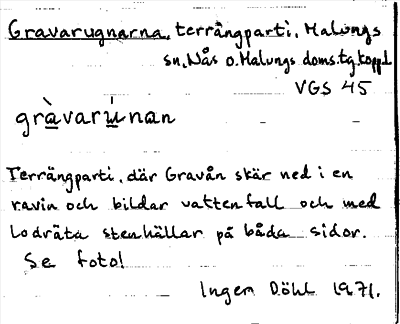 Gravarugnarna, terrängparti. Malungs
sn, Nås o. Malungs doms. tg,
VGS 45
gràvarùnan
Terrängparti, där Gravån skär ned i en
ravin och bildar vattenfall och med
lodräta stenhällar på båda sidor.
Se foto!
Inger Döhl 1971.